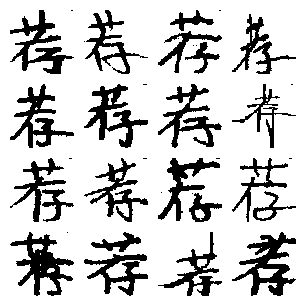 荐荐荐荐
荐荐荐荐
荐荐荐荐
荐荐荐荐